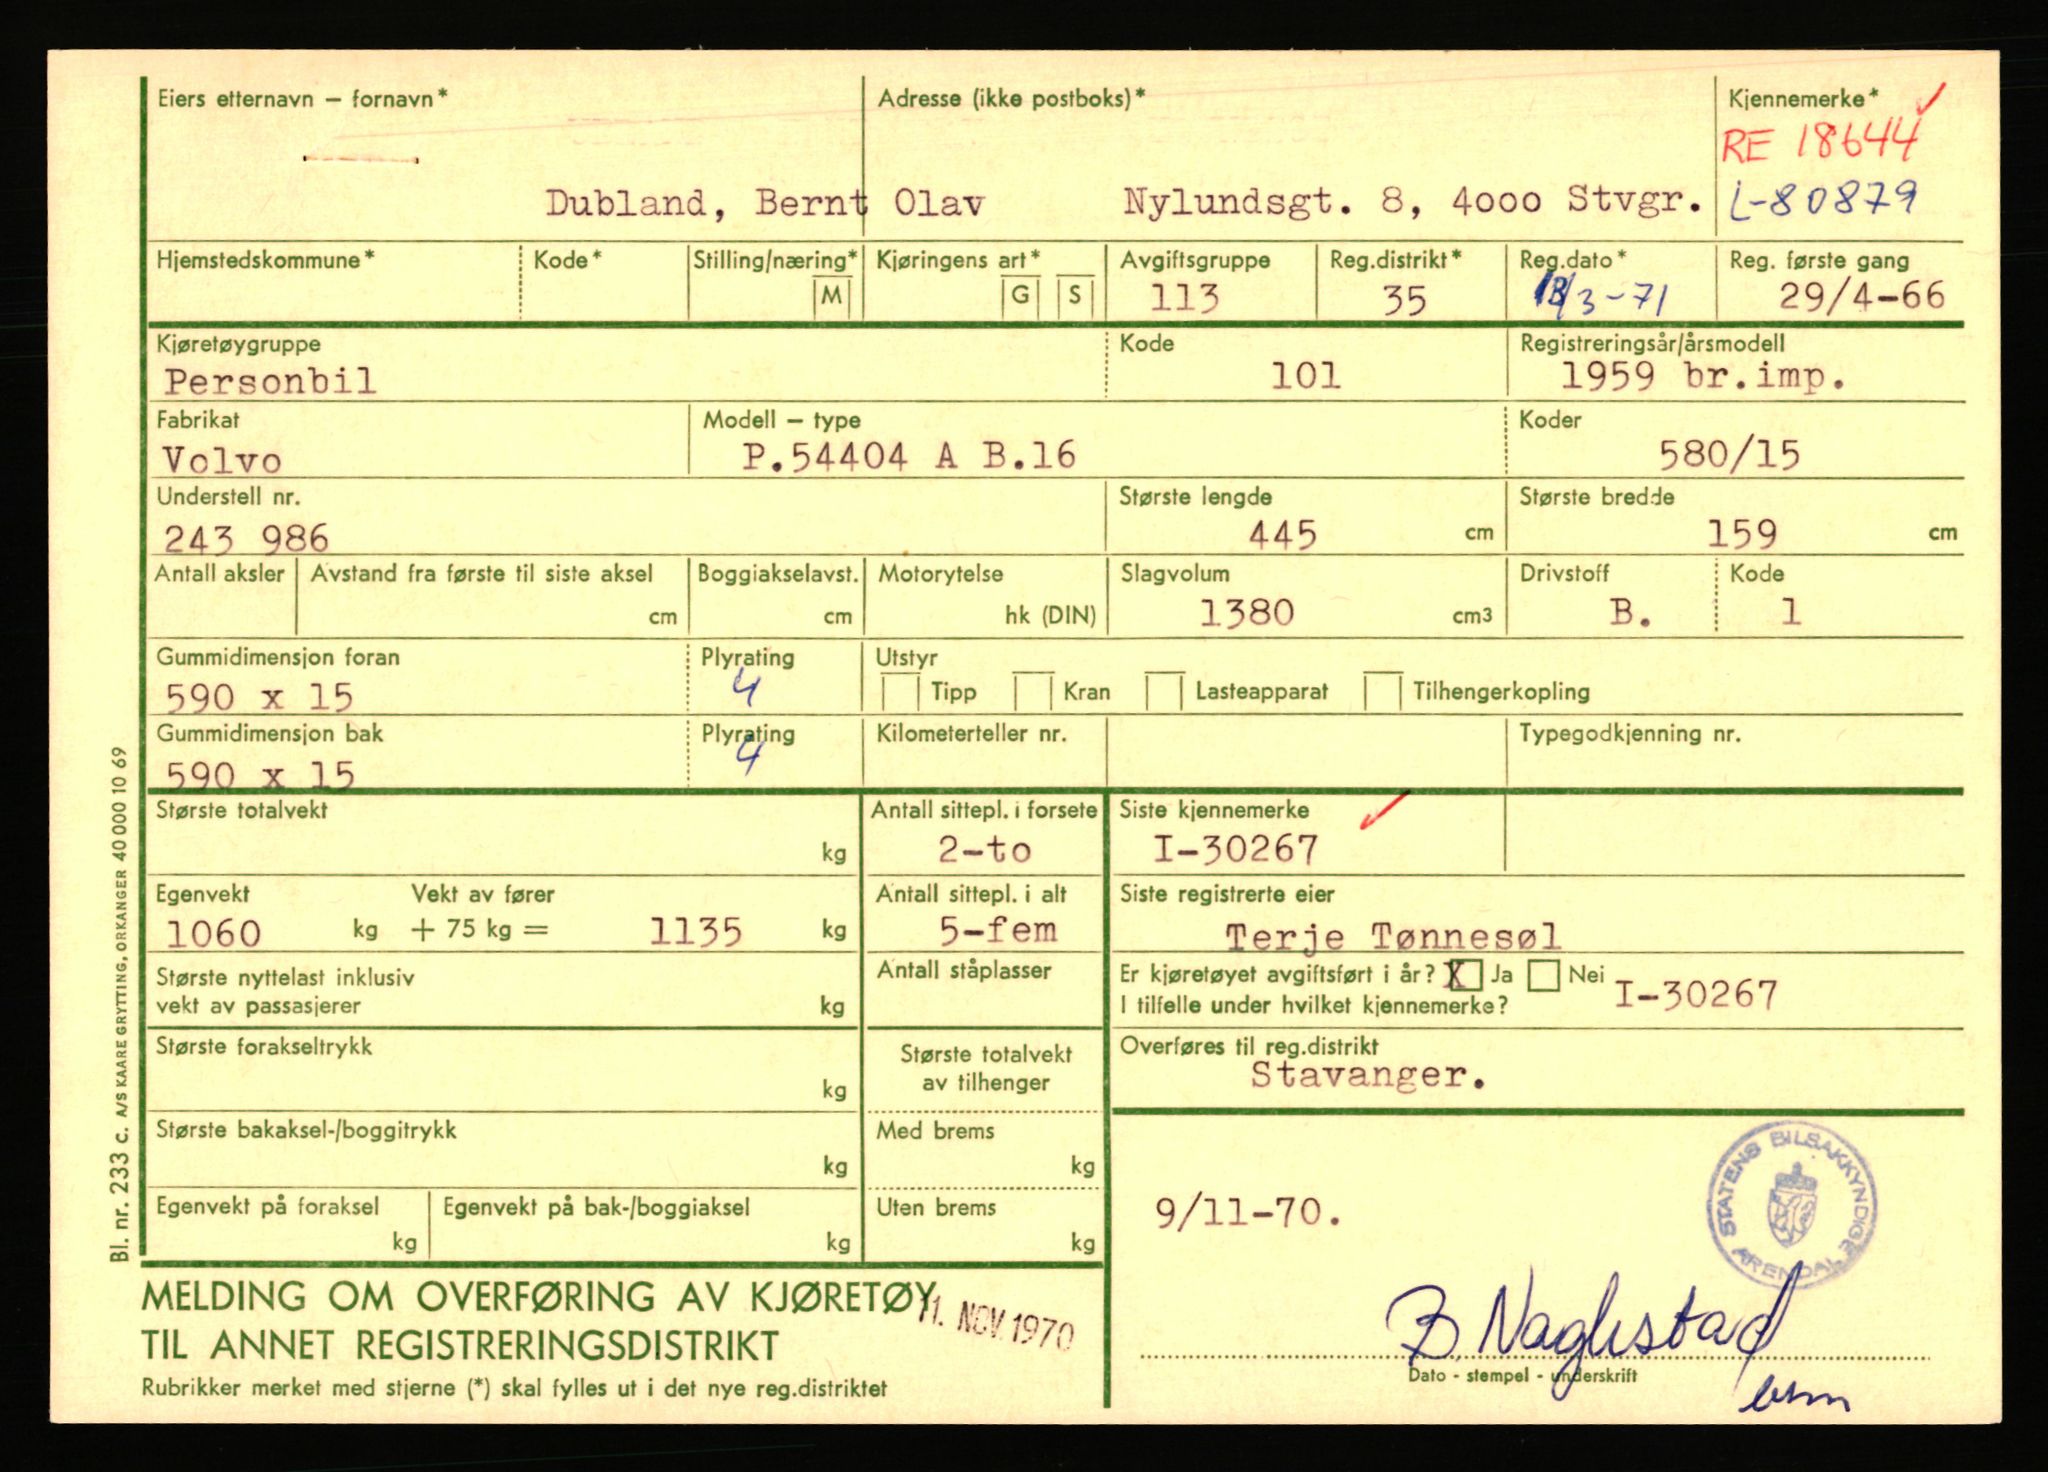 Eiers etternavn – fornavn* Adresse (ikke postboks)* Kjennemerke*
RE 18644
Dubland, Bernt Olav Nylundsgt. 8, 4000 Stvgr. L-80879
Hjemstedskommune* Kode* Stilling/næring* Kjøringens art* Avgiftsgruppe Reg.distrikt* Reg.dato* Reg. første gang
M G S 113 35 18/3-71 29/4-66
Kjøretøygruppe Kode Registreringsår/årsmodell
Personbil 101 1959 br.imp.
Fabrikat Modell – type Koder
Volvo P.54404 A B.16 580/15
Understell nr. Største lengde Største bredde
243 986 445 cm 159 cm
Antall aksler Avstand fra første til siste aksel Boggiakselavst. Motorytelse Slagvolum Drivstoff Kode
cm cm hk (DIN) 1380 cm3 B. 1
Gummidimensjon foran Plyrating Utstyr
590 x 15 4 Tipp Kran Lasteapparat Tilhengerkopling
Gummidimensjon bak Plyrating Kilometerteller nr. Typegodkjenning nr.
590 x 15 4
Største totalvekt Antall sittepl. i forsete Siste kjennemerke
kg 2-to I-30267
Egenvekt Vekt av fører Antall sittepl. i alt Siste registrerte eier
1060 kg + 75 kg = 1135 kg 5-fem Terje Tønnesøl
Største nyttelast inklusiv Antall ståplasser Er kjøretøyet avgiftsført i år? X Ja Nei
vekt av passasjerer kg I tilfelle under hvilket kjennemerke? I-30267
Største forakseltrykk Største totalvekt Overføres til reg.distrikt
kg av tilhenger Stavanger.
Største bakaksel-/boggitrykk Med brems
kg kg
STATENS BILSAKKYNDIGE ARENDAL
Egenvekt på foraksel Egenvekt på bak-/boggiaksel Uten brems 9/11-70.
kg kg kg
MELDING OM OVERFØRING AV KJØRETØY
11. NOV. 1970
TIL ANNET REGISTRERINGSDISTRIKT
B. Naglestad
Dato - stempel - underskrift
Rubrikker merket med stjerne (*) skal fylles ut i det nye reg.distriktet
Bl. nr. 233 c. A/S KAARE GRYTTING, ORKANGER 40 000 10 69